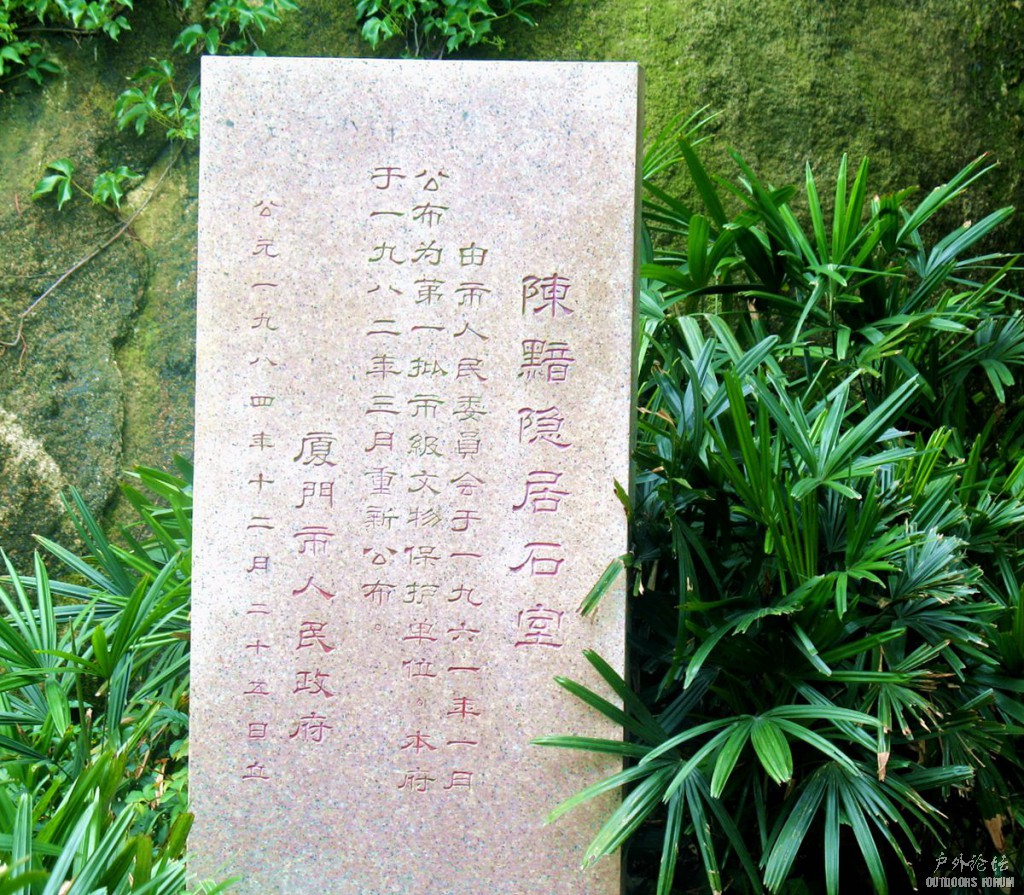 陳黯隐居石室
由市人民委員会于一九六一年一月
公布为第一批市級文物保护单位。本府
于一九八二年三月重新公布。
厦門市人民政府
公元一九八四年十二月二十五日立
户外论坛
OUTDOORS FORUM